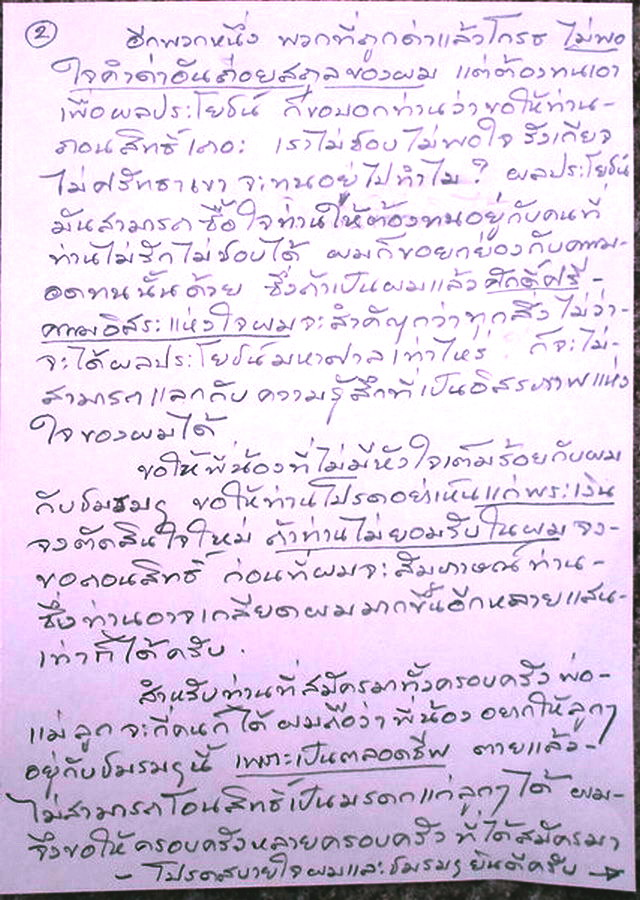 ②
อีกพวกหนึ่ง พวกที่ถูกด่าแล้วโกรธ ไม่พอ
ใจคำด่าอันถ่อยสถุลของผม แต่ต้องทนเอา
เพื่อผลประโยชน์ ก็ขอบอกท่านว่าขอให้ท่าน-
ถอนสิทธิ์เถอะ เราไม่ชอบไม่พอใจ รังเกียจ
ไม่ศรัทธาเขา จะทนอยู่ไปทำไม? ผลประโยชน์
มันสามารถซื้อใจท่านให้ต้องทนอยู่กับคนที่
ท่านไม่รักไม่ชอบได้ ผมก็ขอยกย่องกับความ-
อดทนนั้นด้วย ซึ่งถ้าเป็นผมแล้วศักดิ์ศรี-
ความอิสระแห่งใจผมจะสำคัญกว่าทุกสิ่ง ไม่ว่า-
จะได้ผลประโยชน์มหาศาลเท่าไหร่ ก็จะไม่-
สามารถแลกกับความรู้สึกที่เป็นอิสรภาพแห่ง
ใจของผมได้
ขอให้พี่น้องที่ไม่มีหัวใจเต็มร้อยกับผม
กับชมรมฯ ขอให้ท่านโปรดอย่าเห็นแก่พระเงิน
จงตัดสินใจใหม่ ถ้าท่านไม่ยอมรับในผม จง-
ขอถอนสิทธิ์ ก่อนที่ผมจะสัมภาษณ์ท่าน-
ซึ่งท่านอาจเกลียดผมมากขึ้นอีกหลายแสน-
เท่าก็ได้ครับ.
สำหรับท่านที่สมัครมาทั้งครอบครัว พ่อ-
แม่ ลูก จะกี่คนก็ได้ ผมถือว่าพี่น้องอยากให้ลูกๆ
อยู่กับชมรมฯนี้ เพราะเป็นตลอดชีพ ตายแล้ว-
ไม่สามารถโอนสิทธิ์เป็นมรดกแก่ลูกๆได้ ผม-
จึงขอให้ครอบครัวหลายครอบครัว ที่ได้สมัครมา
- โปรดสบายใจผมและชมรมฯยินดีครับ →